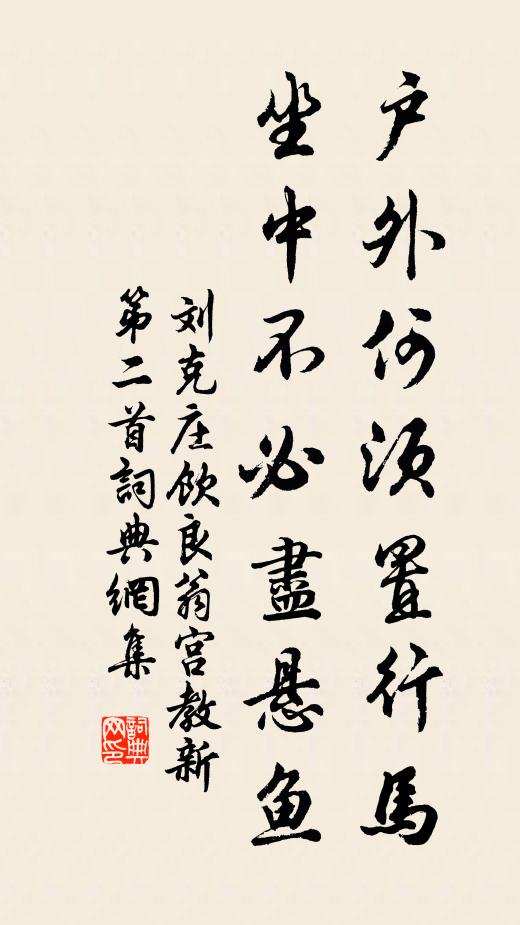 户外何须置行馬
坐中不必盡悬鱼
刘克庄飲良翁宫教新
第二首詞典網集
詞典
网印